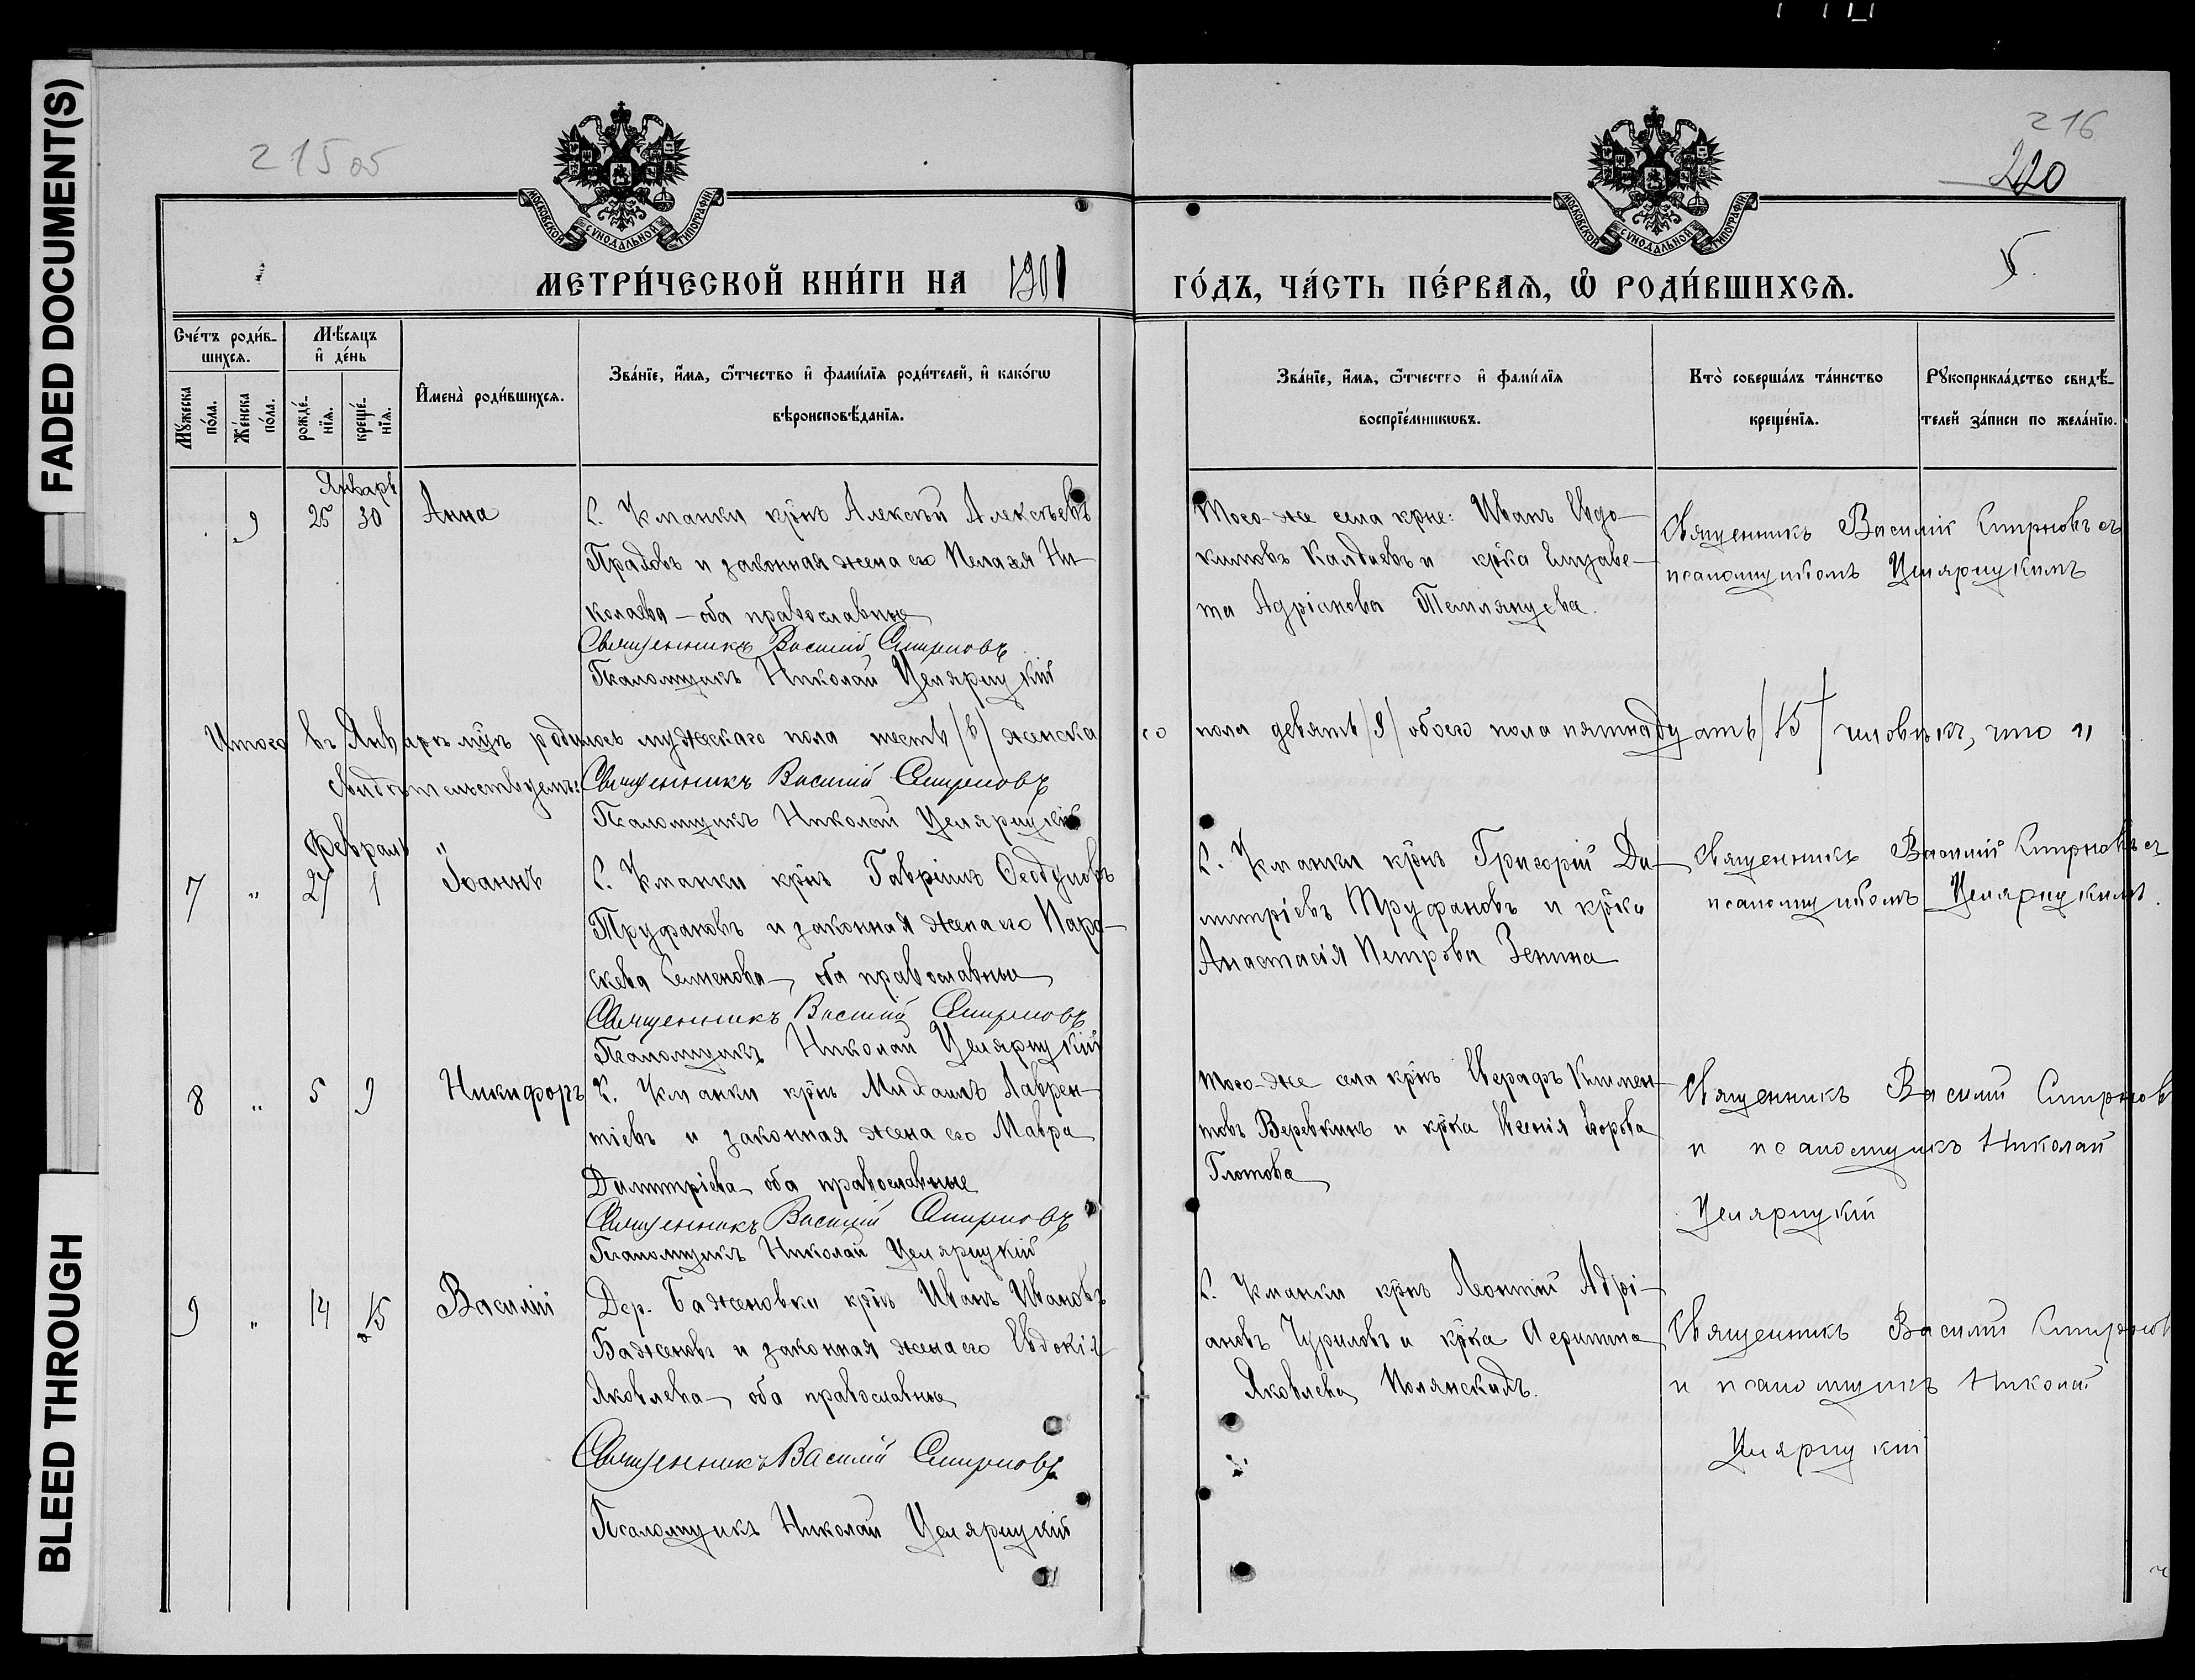 FADED DOCUMENT(S)
BLEED THROUGH
215 об
216
220
МОСКОВСКОЙ СѴНОДАЛЬНОЙ ТИПОГРАФІИ
МОСКОВСКОЙ СѴНОДАЛЬНОЙ ТИПОГРАФІИ
МЕТРИ́ЧЕСКОЙ КНИ́ГИ НА 1901 ГО́ДЪ, ЧА́СТЬ ПЕ́РВАѦ, Ѡ РОДИ́ВШИХСѦ.
5.
Сче́тъ роди́в-
шихсѧ.
Мꙋ́жеска по́ла.
Же́нска по́ла.
Мѣ́сѧцъ и де́нь
рожде́-нїѧ.
креще́-нїѧ.
И҆мена̀ роди́вшихсѧ.
Зва́нїе, и҆́мѧ, ѻ҆́тчество и҆ фами́лїѧ роди́телей, и҆ како́гѡ
вѣроисповѣ́данїѧ.
Зва́нїе, и҆́мѧ, ѻ҆́тчество и҆ фами́лїѧ
воспрїе́мникѡвъ.
Кто̀ соверша́лъ та́инство
креще́нїѧ.
Рꙋкоприкла́дство свидѣ́-
телей за́писи по жела́нїю.
Январь
9 25 30 Анна
С. Уманки крнъ Алексѣй Алексѣевъ
и законная жена его Пелагея Ни-
колаева – оба православные
Священникъ Василій Смирновъ
Псаломщикъ Николай Целярицкій
Того-же села крне: Иванъ Евдо-
кимовъ Калдаевъ и крка Елизаве-
та Адріанова
Священникъ Василій Смирновъ съ
псаломщикомъ Целярицкимъ
Итого въ Январѣ мцѣ родилось мужскаго пола шесть /6/ женскаго пола девять /9/ обоего пола пятнадцать /15/ человѣкъ, что и
свидѣтельствуемъ: Священникъ Василій Смирновъ
Псаломщикъ Николай Целярицкій
Февраль
7 " 27 1 Іоаннъ
С. Уманки крнъ Гавріилъ Ѳеодуловъ
Труфановъ и законная жена его Пара-
скева Семенова – оба православные
Священникъ Василій Смирновъ
Псаломщикъ Николай Целярицкій
С. Уманки крнъ Григорій Ди-
митріевъ Труфановъ и крка
Анастасія Петрова Зенина
Священникъ Василій Смирновъ съ
псаломщикомъ Целярицкимъ.
8 " 5 9 Никифоръ
С. Уманки крнъ Михаилъ Лаврен-
тіевъ и законная жена его Мавра
Димитріева оба православные
Священникъ Василій Смирновъ
Псаломщикъ Николай Целярицкій
Того-же села крнъ Климен-
товъ Веревкинъ и крка Ксенія Егорова
Глотова
Священникъ Василій Смирновъ
и псаломщикъ Николай
Целярицкій
9 " 14 15 Василій
Дер. Баженовки крнъ Иванъ Ивановъ
Баженовъ и законная жена его Евдокія
Яковлева – оба православные
Священникъ Василій Смирновъ
Псаломщикъ Николай Целярицкій
С. Уманки крнъ Леонтій Адрі-
ановъ Чуриловъ и крка
Яковлева Полянскихъ.
Священникъ Василій Смирновъ
и псаломщикъ Николай
Целярицкій